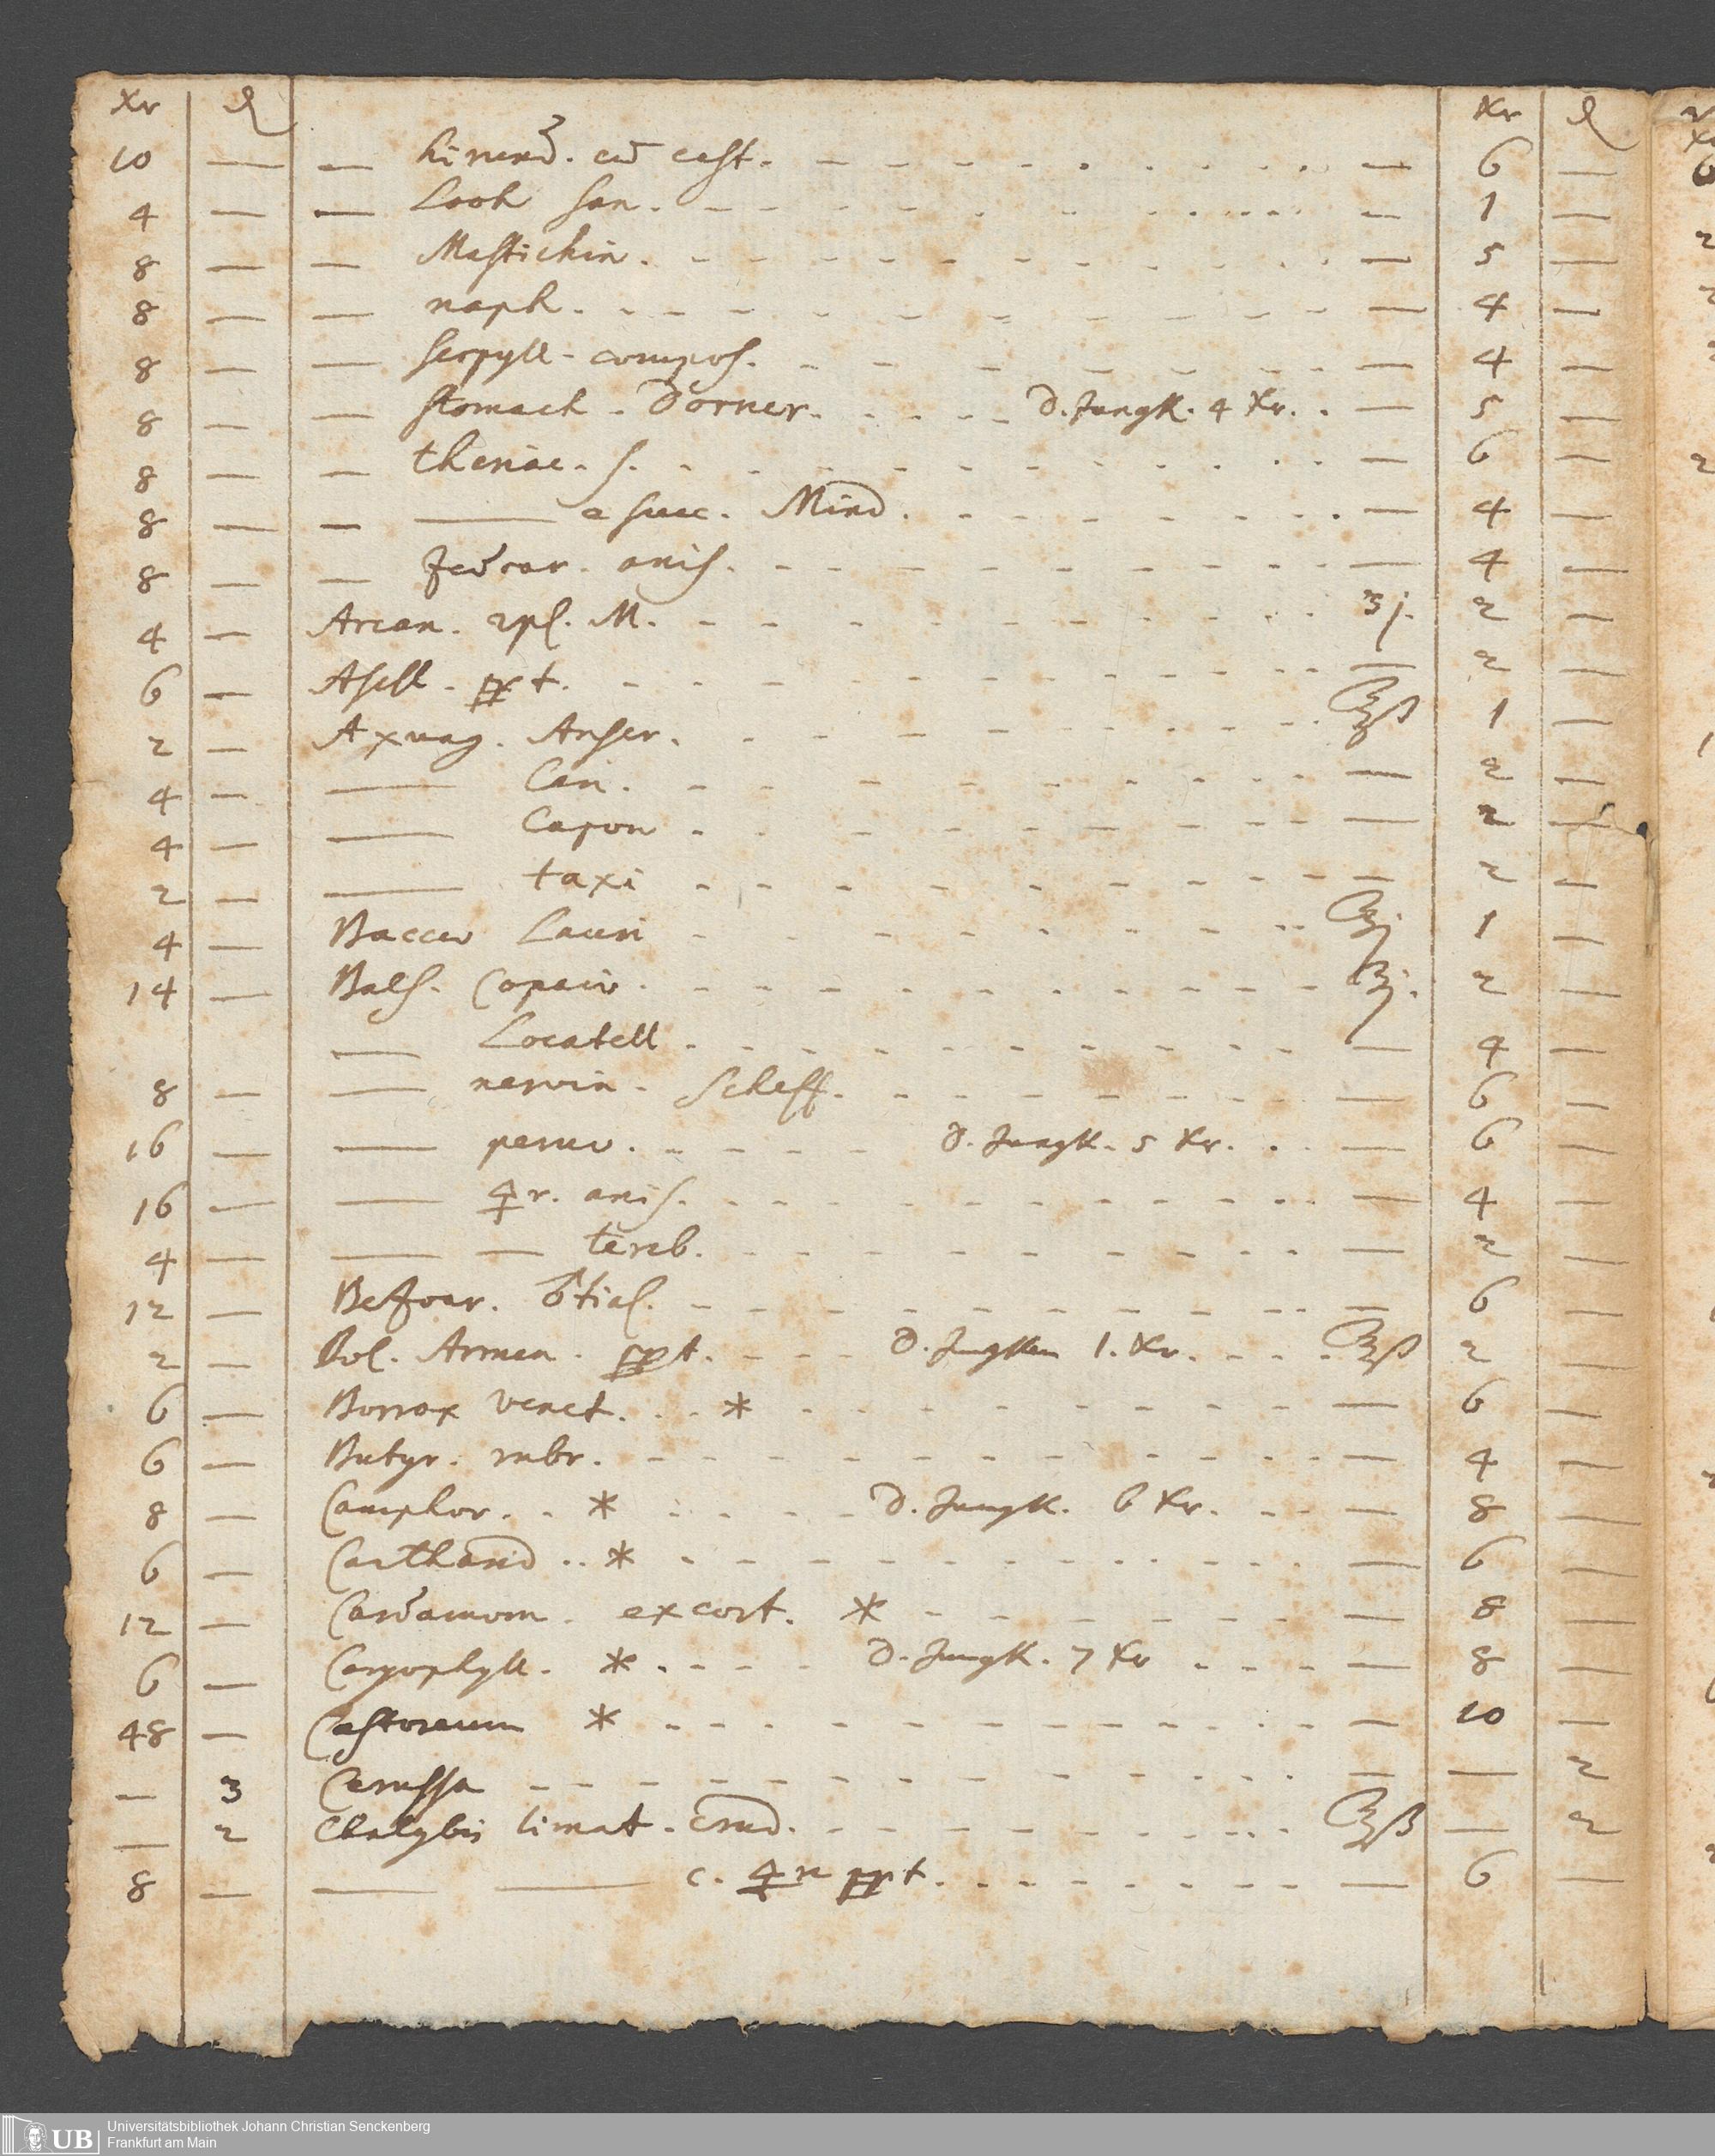 Xr ₰ Xr ₰
10 — — hirund. cū cast. — 6 —
4 — — Looh san. — 1 —
8 — — Mastichin. — 5 —
8 — — naph. — 4 —
8 — — serpyll. compos. — 4 —
8 — — stomach. Dorner. D. Jungk. 4 Xr. — 5 —
8 — — theriac. s. — 6 —
8 — — — e succ. Mind. — 4 —
8 — — zedoar. anis. — 4 —
4 — Arcan. 2pl. M. ʒj. 2 —
6 — Asell. ppt. — 2 —
2 — Axung. Anser. ℥ß 1 —
4 — — Can. — 2 —
4 — — Capon — 2 —
2 — — taxi — 2 —
4 — Baccæ Lauri ℥j. 1 —
14 — Bals. Copaiv. ʒj. 2 —
— Locatell. — 4 —
8 — — nervin. Scheff. — 6 —
16 — — peruv. D. Jungk. 5 Xr. — 6 —
16 — — 🜍r. anis. — 4 —
4 — — — tereb. — 2 —
12 — Bezoar. ♂tial. — 6 —
2 — Bol. Armen. ppt. D. Jungken 1. Xr. ℥ß 2 —
6 — Borrax venet. * — 6 —
6 — Butyr. rubr. — 4 —
8 — Camphor. * D. Jungk. 6 Xr. — 8 —
6 — Canthard. * — 6 —
12 — Cardamom. excort. * — 8 —
6 — Caryophyll. * D. Jungk. 7 Xr — 8 —
48 — Castoreum * — 10 —
— 3 Cerussa — — 2
— 2 Chalybis limat. crud. ℥ß — 2
8 — — — c. 🜍r ppt. — 6 —
UB
Universitätsbibliothek Johann Christian Senckenberg
Frankfurt am Main